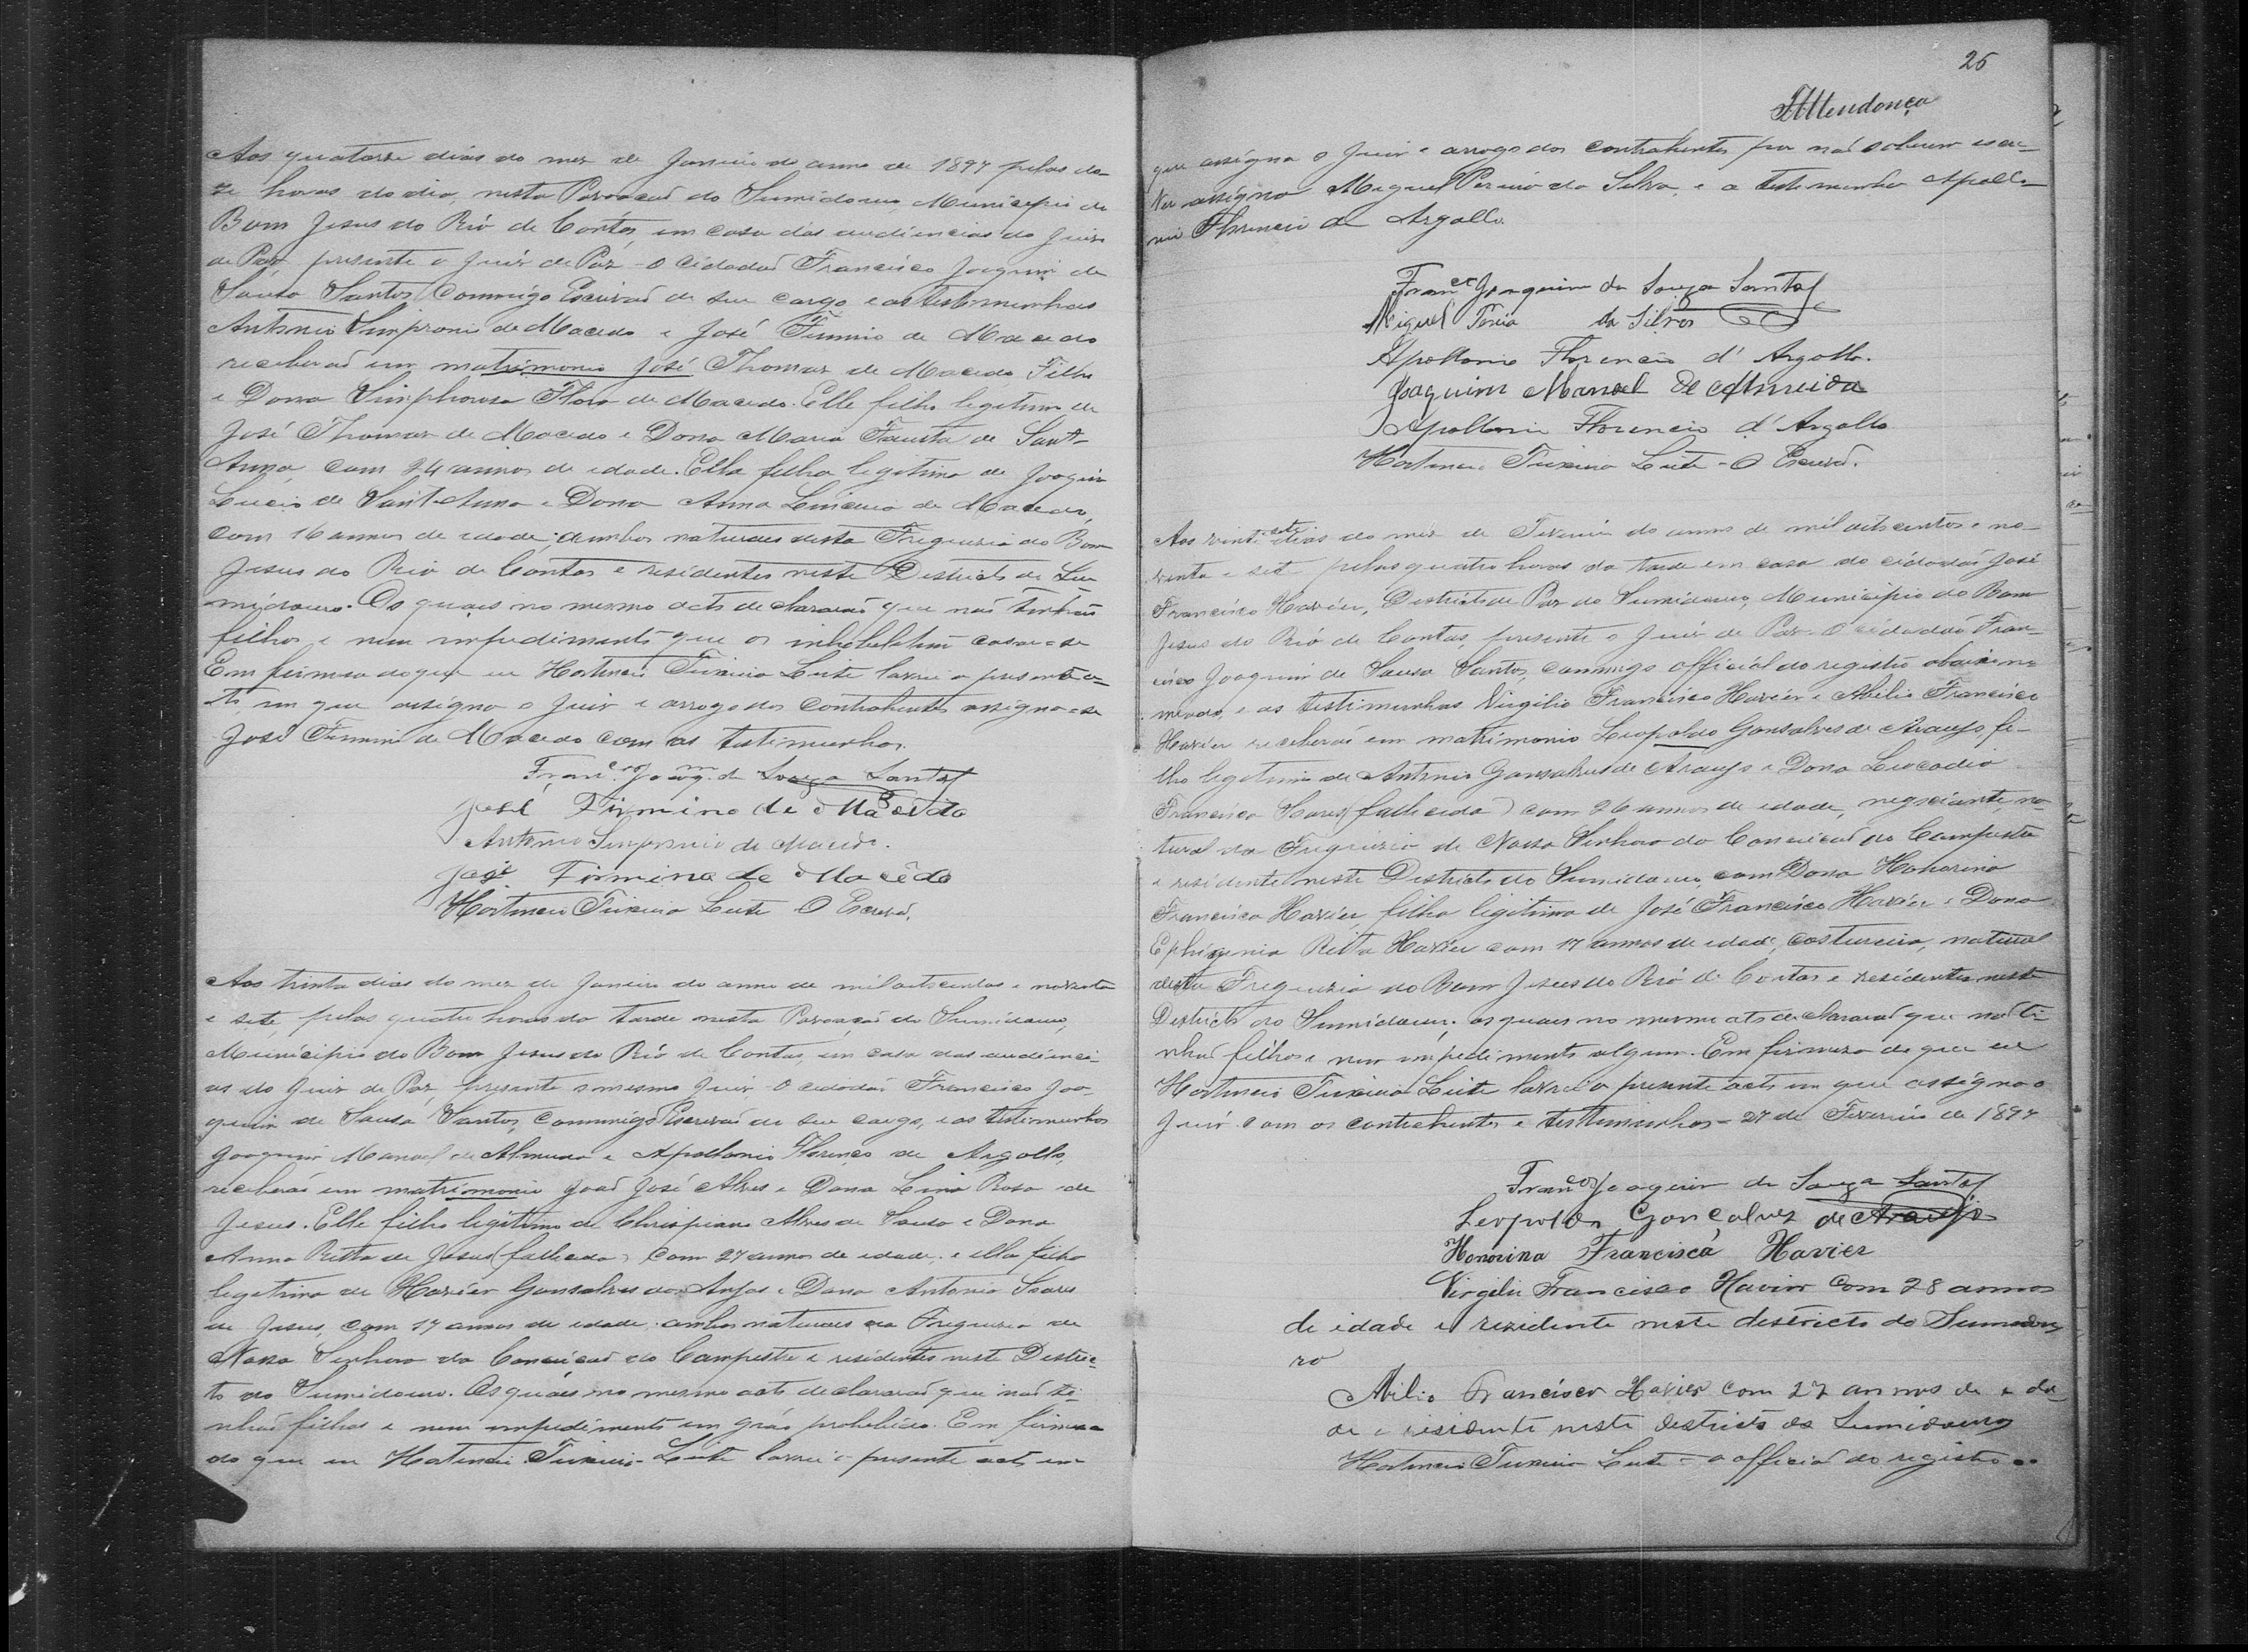 Aos quatorze dias do mez de Janeiro do anno de 1897 pelas do-
ze horas do dia, nesta Povoacaõ do Sumidouro, Municipio do
Bom Jesus do Rió de Contas, em casa das audiencias do Juiz
de Paz presente o Juiz de Paz - o Cidadaõ Francisco Joaquim de
Sousa Santos Commigo Escrivaõ de seu cargo e as testemunhas
Antonio Simpronio de Macedo e José Firmino de Macedo
receberaõ em matrimonio José Thomaz de Macedo Filho
e Dona Simphorosa Flora de Macedo. Elle filho legitimo de
José Thomaz de Macedo e Dona Maria Fausta de Sant-
Anna, com 24 annos de idade. Ella filha legitima de Joaquim
Lucio de Sant-Anna e Dona Anna de Macedo,
com 16 annos de idade; ambos naturaes desta Freguezia do Bom
Jesus do Rio de Contas e residentes neste Districto do Su-
midouro. Os quaes no mesmo acto declararaõ que naõ tinhaõ
filhos e nem impedimento que os casar-se
Em firmeza do que eu Hortencio Teixeira Leite lavrei o presente ac-
to, em que assigna o Juiz e arrogo dos Contrahentes assigna-se
José Firmino de Macedo com as testemunhas.
Franc.co Joaq.m de Souza Santos
José Firmino de Macêdo
Antonio Simpronio de Macedo.
José Firmino de Macêdo
Hortencio Teixeira Leite - O Escrivaõ,
Aos trinta dias do mez de Janeiro do anno de mil oitocentos e noventa
e sete, pelas quatro horas da tarde nesta Povoaçaõ do Sumidouro,
Municipio do Bom Jesus do Rió de Contas, em casa das audienci-
as do Juiz de Paz, presente o mesmo Juiz - O cidadaõ Francisco Joa-
quim de Sousa Santos commigo Escrivaõ de seu cargo, e as testemunhas
Joaquim Manoel de Almeida e Apollonio Florencio de Argollo,
receberaõ em matrimonio Joaõ José Alves e Dona Lina Rosa de
Jesus. Elle filho legitimo de Chrispiano Alves de Sousa e Dona
Anna Ritta de Jesus (fallecida) com 27 annos de idade; e ella filha
legitima de Xavier Gonsalves dos Anjos e Dona Antonia Soares
de Jesus, com 17 annos de idade; ambos naturaes da Freguezia de
Nossa Senhora da Conceicaõ do Campestre e residentes neste Distric-
to do Sumidouro. Os quaes no mesmo acto declararaõ que naõ ti-
nhaõ filhos e nem impedimento em gráo prohibido. Em firmeza
do que eu Hortencio Teixeira Leite lavrei o presente acto em
25
FMendonça
que assigna o Juiz e arrogo dos contrahentes, por naõ saberem escre-
ver assigna Miguel Pereira da Silva, e a testemunha Apollo-
nio Florencio de Argollo.
Franco Joaquim de Souza Santos
Miguel Pereira da Silva
Apollonio Florencio d' Argollo.
Joaquim Manoel de Almeida
Apollonio Florencio d' Argollo
Hortencio Teixeira Leite - O Escrivaõ.
Aos vinte sete dias do mez de Fevereiro do anno de mil oitocentos e no-
venta e sete pelas quatro horas da tarde em casa do cidadaõ José
Francisco Xavier, Districto de Paz do Sumidouro, Municipio do Bom
Jesus do Rió de Contas, presente o Juiz de Paz - O cidadaõ Fran-
cisco Joaquim de Sousa Santos, commigo official do registro abaixo no-
meado, e as testimunhas Virgilio Francisco Xavier e Abilio Francisco
Xavier receberaõ em matrimonio Leopoldo Gonsalves de Araujo, fi-
lho legitimo de Antonio Gonsalves de Araujo e Dona Leocadia
Francisca Soares (fallecida) com 26 annos de idade, negociante na-
tural da Freguezia de Nossa Senhora da Conceicaõ do Campestre
e residente neste Districto do Sumidouro, com Dona Honorina
Francisca Xavier, filha legitima de José Francisco Xavier e Dona
Ephigenia Ritta Xavier com 17 annos de idade, costureira, natural
desta Freguezia do Bom Jesus do Rió de Contas e residentes neste
Districto do Sumidouro; os quaes no mesmo acto declararaõ que naõ ti-
nhaõ filhos e nem impedimento algum. Em firmeza do que eu
Hortencio Teixeira Leite lavrei o presente acto em que assigna o
Juiz com os contrahentes e testimunhas - 27 de Fevereiro de 1897
Franco Joaquim de Souza Santos
Leopoldo Gonçalvez de Araujo
Honorina Francisca Xavier
Virgilio Francisco Xavier com 28 annos
de idade e rezidente neste districto do Sumidou
ro
Abilio Francisco Xavier com 27 annos de ida
de e residente neste districto do Sumidouro
Hortencio Teixeira Leite - o official do registro.